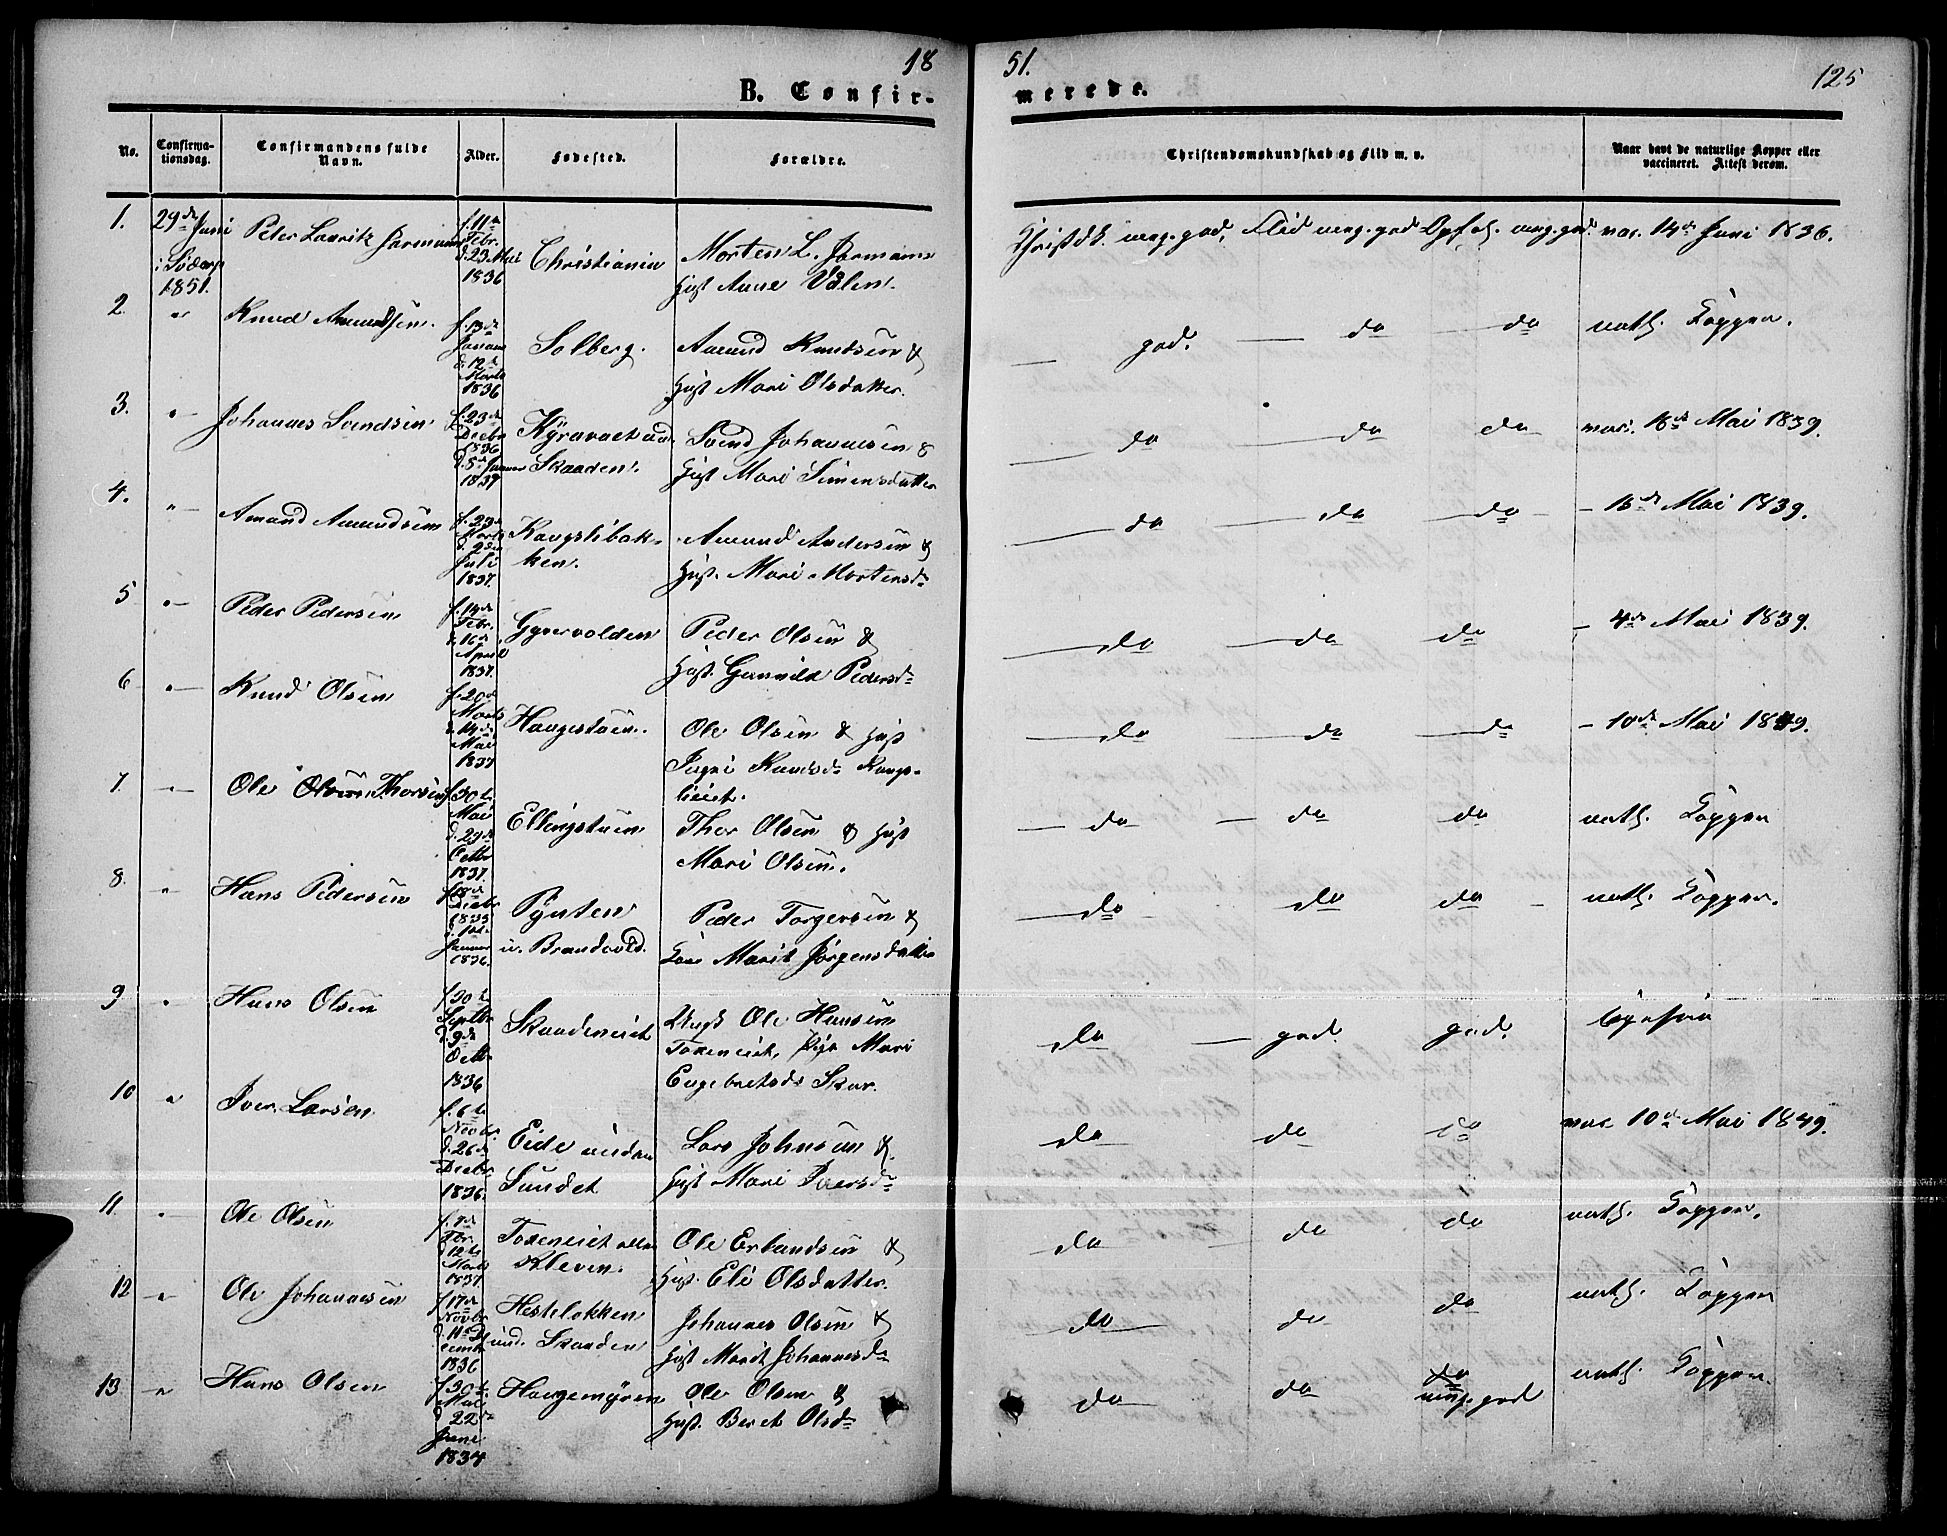 18 51. 125
B. Confirmerede.
No. Confirmationsdag. Confirmandens fulde Navn. Alder. Fødested. Forældre. Christendomskundskab og Flid m. v. Naar havt de naturlige Kopper eller vaccineret. Attest derom.
1. 29de Juni i Sødorp 1851. Peter Lauritz f. 11te Febr. d. 23 Mai 1836 Christiania Morten L.
Hust Anne
Christdk. meg. god, Flid meg. god Opf. meg. god. vac. 14de Juni 1836.
2. " Knud Amundsen. f. 13de Januar d. 12te Marts 1836 Solberg. Amund Knudsen &
Hust Mari Olsdatter.
god. do do nath. Kopper.
3. " Johannes Svendsen f. 23de Decbr 1836 d. 5te Januar 1837 Skaaden. Svend Johannesen &
Hust Mari Simensdatter
do do do vac. 18de Mai 1839.
4. " Amund Amundsen f. 23de Marts d. 2den Juli 1837. Kongslibakken. Amund Andersen &
Hust. Mari Mortensd.
do do do – 18de Mai 1839.
5 " Peder Pedersen f. 14de Febr. d. 16de April 1837. Peder Olsen &
Hust. Pedersd.
do do do – 4de Mai 1839.
6 " Knud Olsen f. 20de Marts d. 14de Mai 1837 Haugestuen. Ole Olsen & Hust
Ingri Knudsd.
do do do – 10de Mai 1849.
7. " Ole Thorsen f. 30te Mai d. 29de Octbr 1837. Ellingstuen Thor Olsen & Hust
Mari Olsen.
do do do nath. Kopper
8. " Hans Pedersen f. 18de Decbr 1835 d. Januar 1836. Pynten
u. Brandvold. Peder Torgersen &
Kone Marit Jørgensdatter
do do do nath. Kopper.
9 " Hans Olsen f. 30te Septbr d. 9de Octbr 1836 Skaadeneiet Ungk Ole Hansen
Pige Mari
Engebretsd. Skar.
do god. god.
10 " Iver Larsen f. 6te Novbr. d. 26de Decbr 1836. Eide under
Sundet Lars Johnsen &
Hust Mari Iversd.
do do do vac 10de Mai 1849.
11. " Ole Olsen d. 12te Marts 1837. Kleven. Ole Erlandsen &
Hust. Eli Olsdatter.
do do do nath. Kopper.
12 " Ole Johannesen f. 17de Novbr d. 11te Decemb 1836 Hesteløkken
und. Skaaden Johannes Olsen &
Hust Marit Johannesd.
do do do nath. Kopper
13 " Hans Olsen f. 30te Mai d. 22de Juni 1834 Haugemyren Ole Olsen &
Hust. Beret Olsd.
do do do
meg. god nath. Kopper.